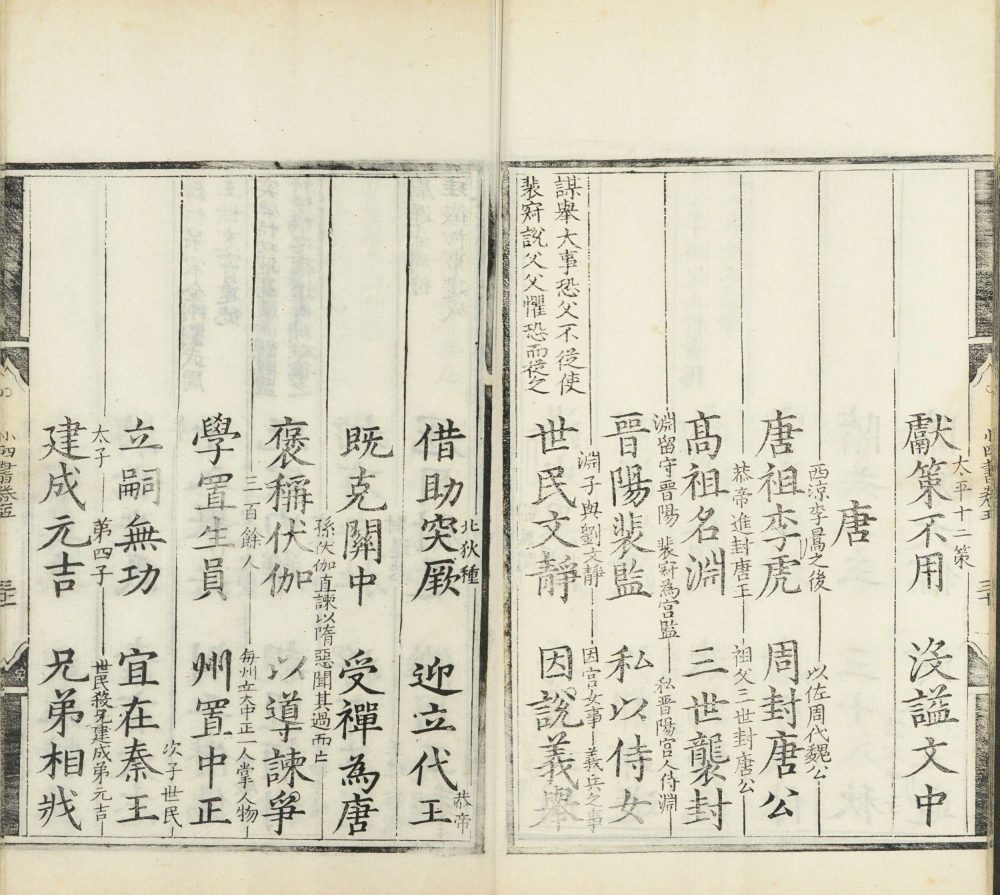 太平十二策
獻策不用　沒謚文中
唐
西涼李暠之後　以佐周代魏公
唐祖李虎　周封唐公
恭帝進封唐王　祖父三世封唐公
高祖名淵　三世襲封
淵留守晉陽　裴寂為宮監　私晉陽宮人侍淵
晉陽裴監　私以侍女
淵子與劉文靜　因宮女事　義兵之事
世民文靜　因說義舉
謀舉大事恐父不從使
裴寂說父父懼恐而從之
北狄種　恭帝
借助突厥　迎立代王
既克關中　受禪為唐
孫伏伽直諫以隋惡聞其過而亡
褒稱伏伽　以導諫爭
三百餘人　每州立大中正一人掌人物
學置生員　州置中正
次子世民
立嗣無功　宜在秦王
太子　第四子　世民殺兄建成弟元吉
建成元吉　兄弟相戕
小四書卷五